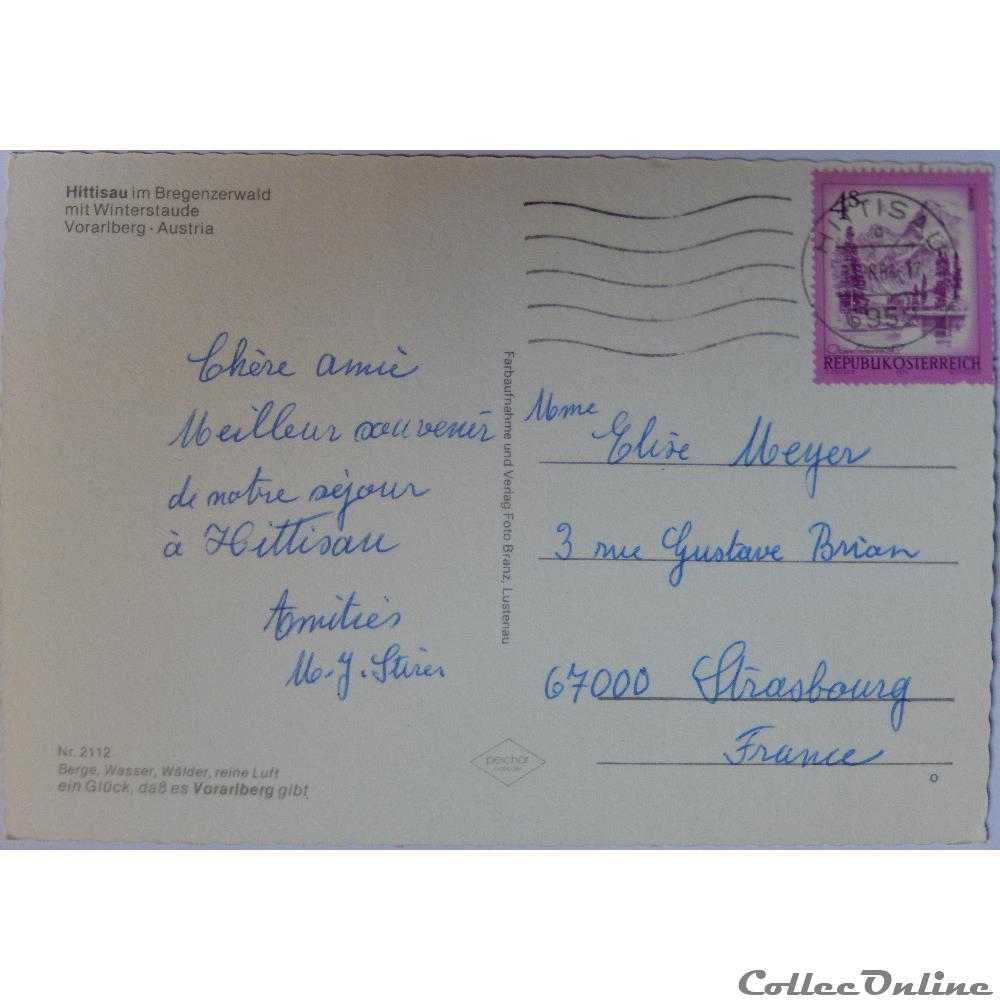 Hittisau im Bregenzerwald
mit Winterstaude
Vorarlberg - Austria
Chère amie
Meilleur souvenir
de notre séjour
à Hittisau
Amitiés
M.-J.
Nr. 2112
Berge, Wasser, Wälder, reine Luft
ein Glück, daß es Vorarlberg gibt
Farbaufnahme und Verlag Foto Branz, Lustenau
4S
HITTISAU
a
6952
REPUBLIK ÖSTERREICH
Mme
Elise Meyer
3 rue Gustave Brian
67000 Strasbourg
France
CollecOnline